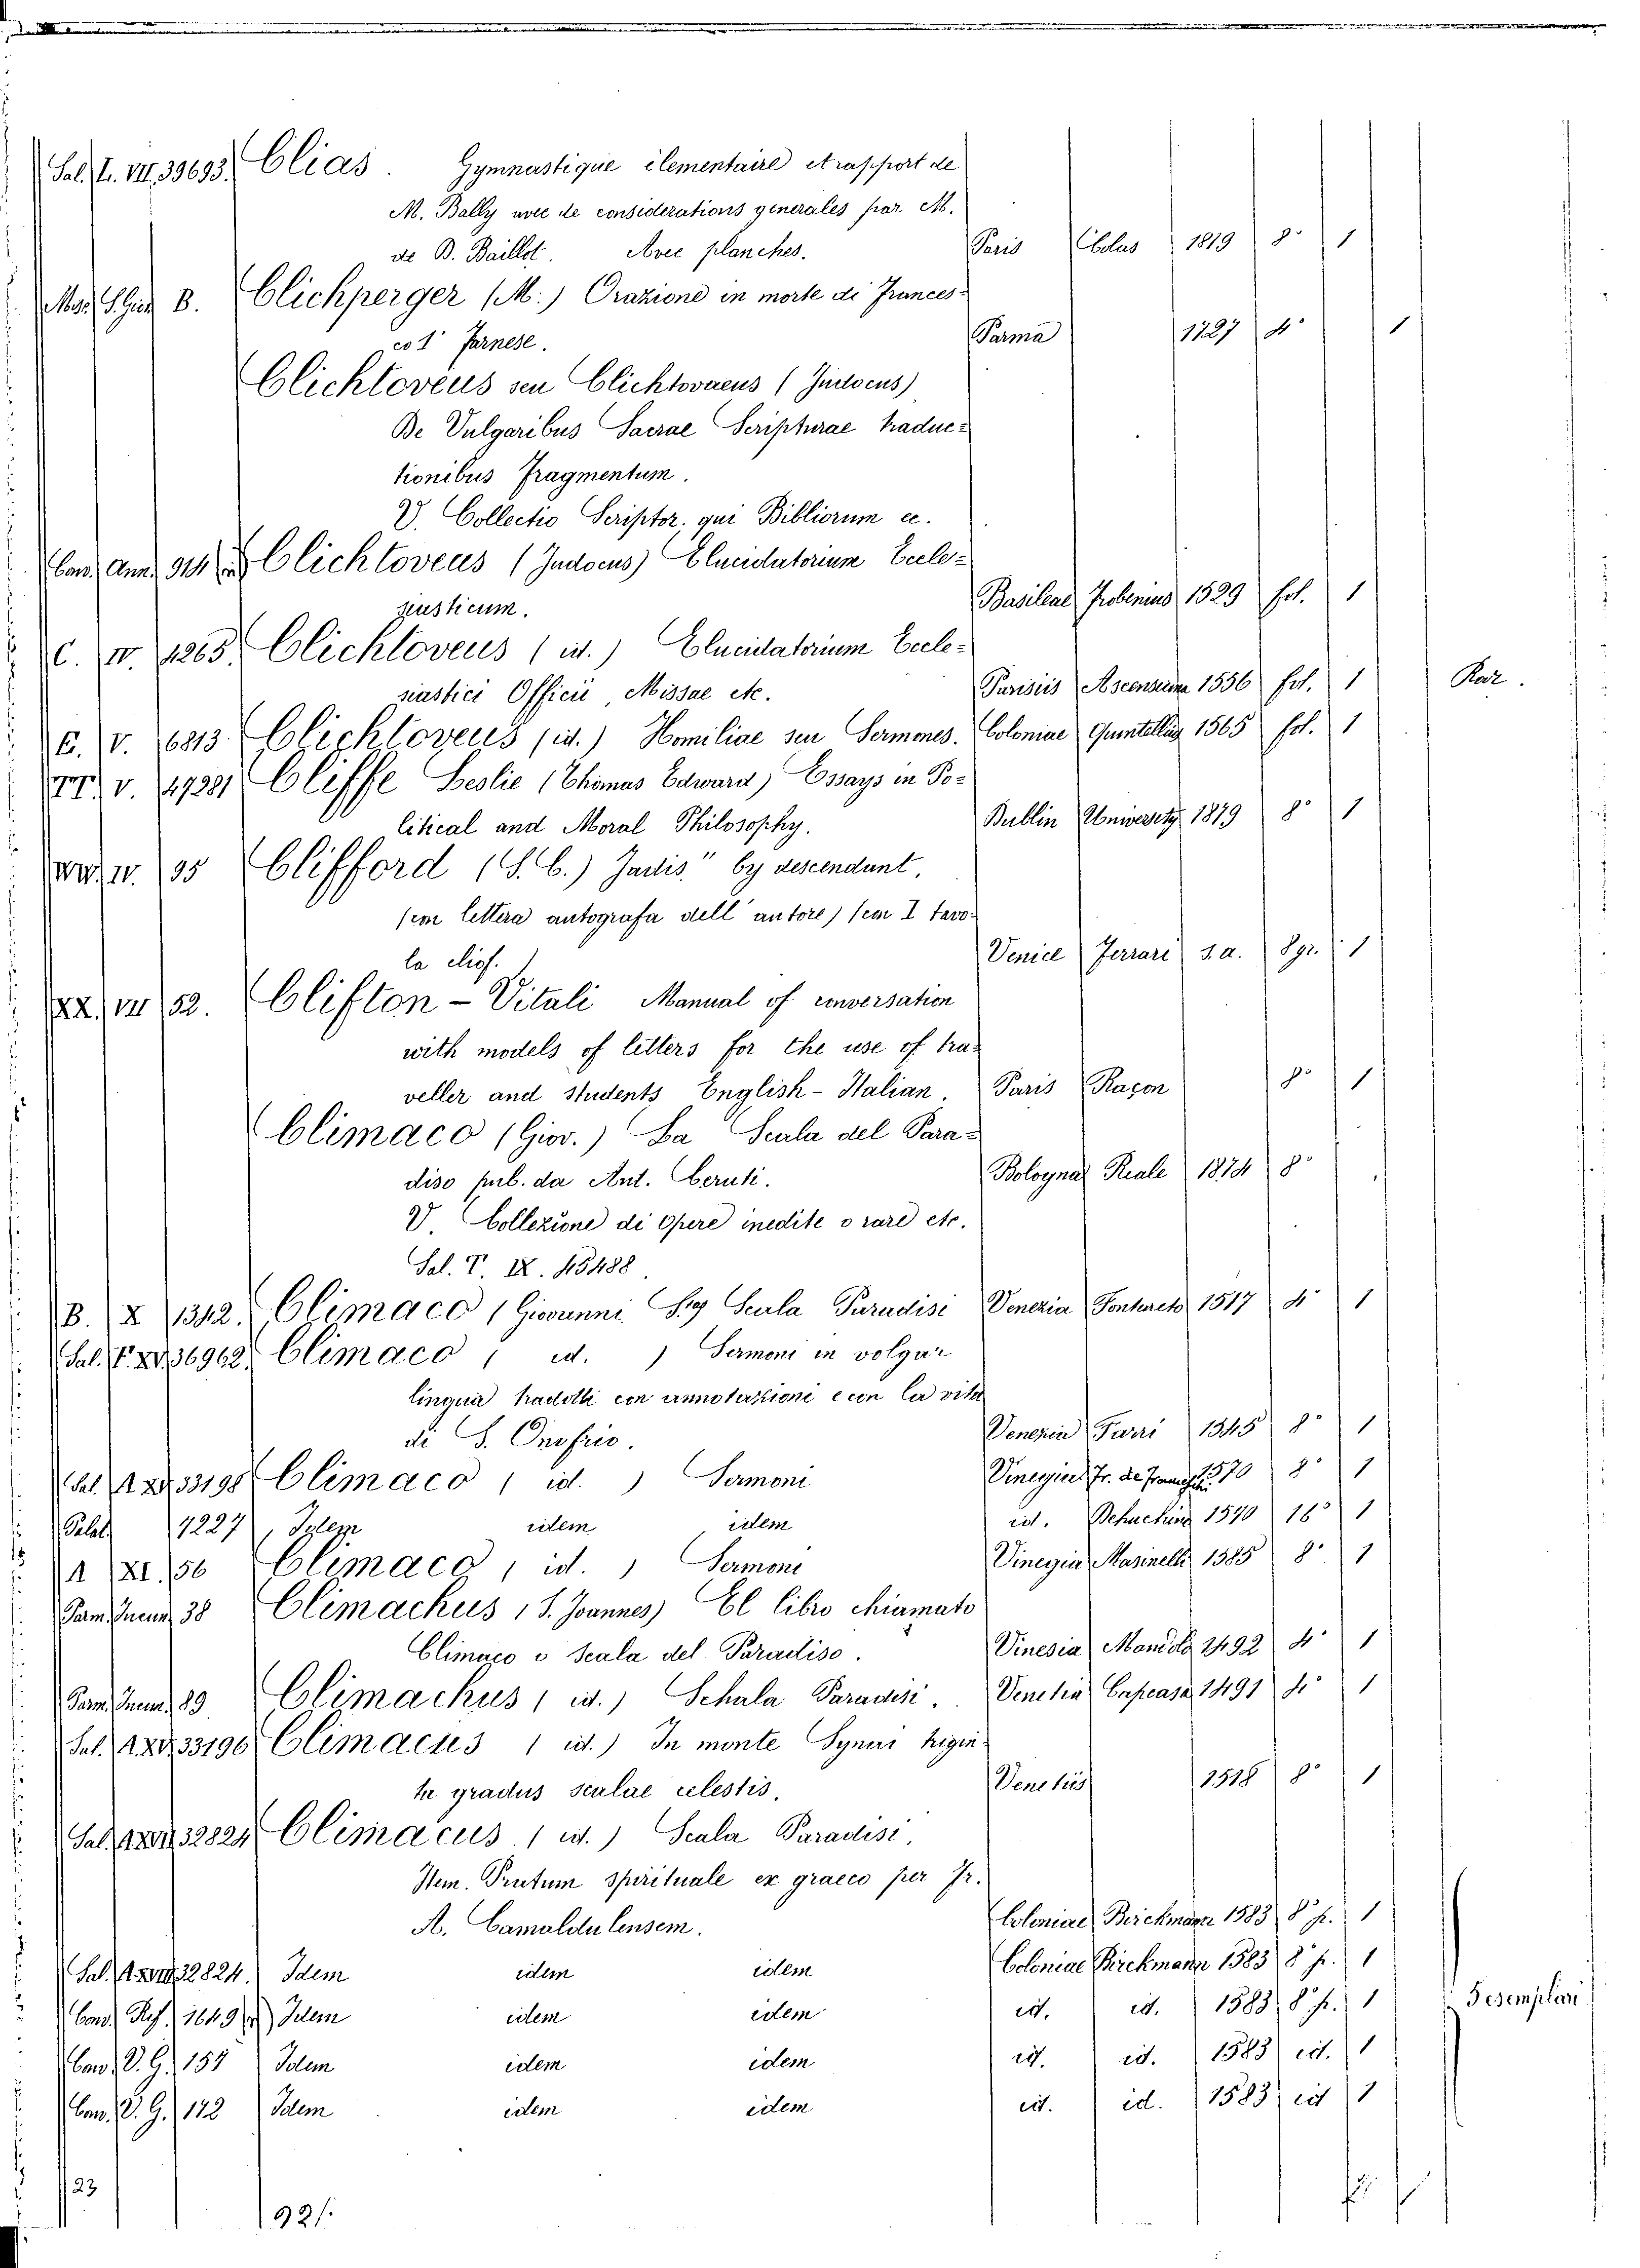 Sal. L. VII. 39693. Clias. Gymnastique élementaire et rapport de
M. Bally avec de considerations generales par M.
de B. Baillot. Avec planches. Paris Colas 1819 8° 1
B. Clichperger (M.) Orazione in morte di Frances-
co 1° Farnese. Parma 1727 4° 1
Clichtoveus seu Clichtovaeus (Judocus)
De Vulgaribus Sacrae Scripturae traduc-
tionibus Fragmentum.
V. Collectio Scriptor. qui Bibliorum ec.
Clichtoveus (Judocus) Elucidatorium Eccle-
siasticum. Basileae Frobenius 1529 fol. 1
C. IV. 4263. Clichtoveus (id.) Elucidatorium Eccle-
siastici Officii, Missae etc. Parisiis Ascensium 1556 fol. 1 Rar.
E. V. 6813 Clichtoveus (id.) Homiliae seu Sermones. Coloniae 1565 fol. 1
TT. V. Cliffe Leslie (Thomas Edward) Essays in Po-
litical and Moral Philosophy. Dublin University 1879 8° 1
IV. 95 Clifford (S. C.) Jadis" by descendant,
(con lettera autografa dell'autore) (con I tavo-
la eliof.) Venice Ferrari s.a. 8 gr. 1
XX. VII 52. Clifton - Vitali Manual of conversation
with models of letters for the use of tra-
veller and students English - Italian. Paris Raçon 8° 1
Climaco (Giov.) La Scala del Para-
diso pub. da Ant. Ceruti. Bologna Reale 1874 8°
V. Collezione di Opere inedite o rare etc.
Sal. T. IX. 45488
B. X 1342. Climaco (Giovanni S.) Scala Paradisi Venezia 1517 4° 1
Sal. F. XV. 36962. Climaco ( id. ) Sermoni in volgar
lingua tradotti con annotazioni e con la vita
di S. Onofrio. Venezia Farri 1545 8° 1
Sal. A XV. 33198 Climaco ( id. ) Sermoni Vinegia Fr. de 1570 8° 1
Palat. 7227, Idem idem idem id. 1590 16° 1
A XI. 56 Climaco ( id. ) Sermoni Vinegia Masinelli 1585 8° 1
38 Climachus (S. Joannes) El libro chiamato
Climaco o Scala del Paradiso. Vinesia 1492 4° 1
89 Climachus ( id. ) Schala Paradisi. Venetia 1491 4° 1
Sal. A XV. 33196 Climacus ( id. ) In monte Synai trigin-
ta gradus scalae celestis. Venetiis 1518 8° 1
32824 Climacus ( id. ) Scala Paradisi.
Item. Pratum spirituale ex graeco per Fr.
A. Camaldulensem. Coloniae Birckmann 1583 8° p. 1
Sal. A XVII 32824. Idem idem idem Coloniae Birckmann 1583 8° p. 1
Idem idem idem id. id. 1583 8° p. 1 5 esemplari
V. G. 157 Idem idem idem id. id. 1583 id. 1
V. G. 172 Idem idem idem id. id. 1583 id 1
23
921.